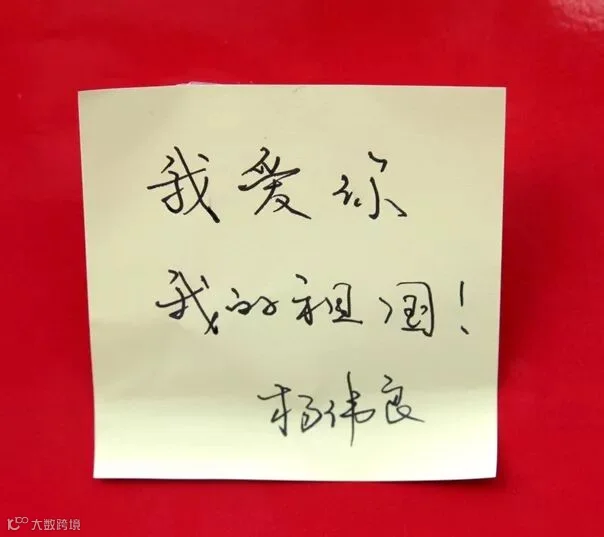 我爱你
我的祖国！
杨伟良
大数跨境